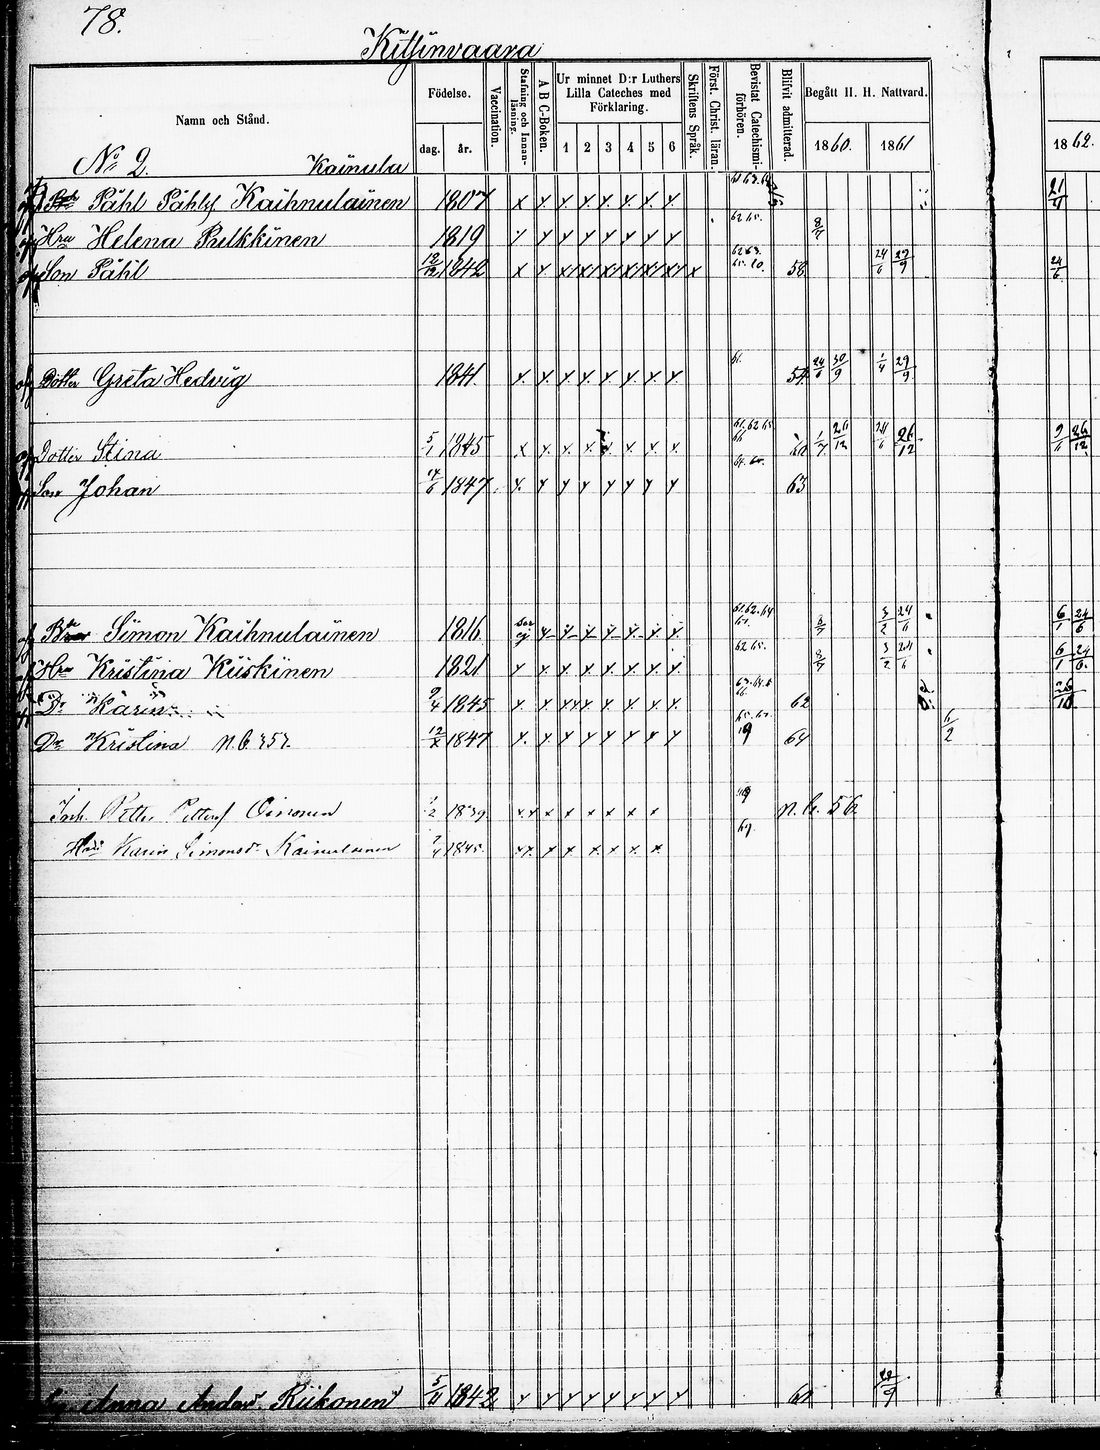 78.
Kitsinvaara
Namn och Stånd.
Födelse.
dag. år.
Vaccination.
Stafning och Innanläsning.
A B C-Boken.
Ur minnet D:r Luthers Lilla Cateches med Förklaring.
1 2 3 4 5 6
Skriftens Språk.
Först. Christ. läran.
Bevistat Catechismi-förhören.
Blifvit admitterad.
Begått H. H. Nattvard.
1860. 1861 1862.
No 2. Kainula
Påhl Påhls Kaihnulainen 1807 x x x x x x x x 21/11
Hru Helena Pulkkinen 1819 x x x x x x x x 62 65. 8/7
Son Påhl 12/12 1842 x x 58 24/6 29/9 24/6
Dotter Greta Hedvig 1841 x x x x x x x x 61. 57 24/6 30/9 1/4 29/9
Dotter Stina 5/1 1845 x x x x x x x x 61. 62 65 66 60 26/12 24/6 26/12 9/11 26/12
Son Johan 14/6 1847 x x x x x x x x 63
Simon Kaihnulainen 1816 x x x x x x x 61. 62. 64 8/7 3/2 24/6 6/1 24/6
Hru Kristina Kiiskinen 1821 x x x x x x x x 62 65. 8/7 3/2 24/6 6/1 24/6
Dr Karin 9/4 1845 x x x x x x x x 62 26/10
Dr Kristina n.b. 257. 12/x 1847 x x x x x x x x 64 6/2
Inh. Petter Petters Oinonen 1839 x x x x x x x x n. b. 56.
Hru Karin Simonsdr Kainulainen 1845. x x x x x x x x 69.
Anna Andersdr Riikonen 5/11 1842 x x x x x x x x 60 29/9